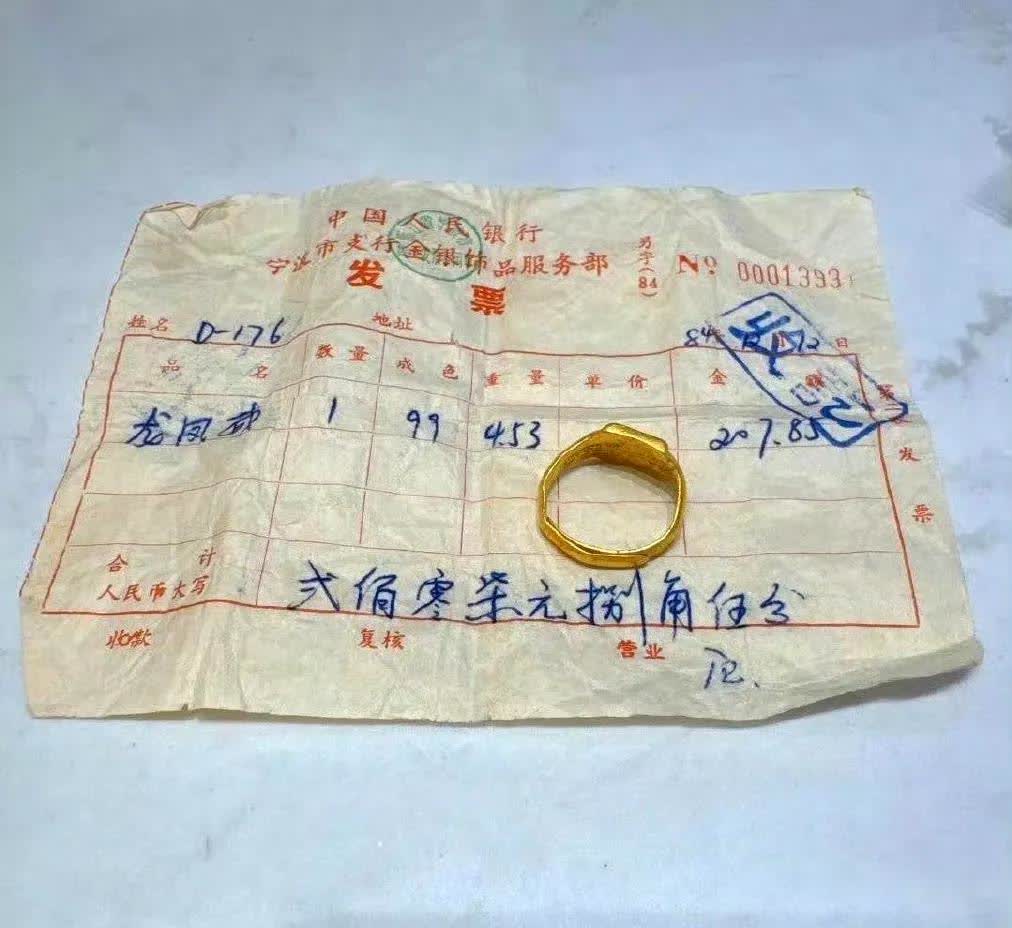 中国人民银行
宁波市支行金银饰品服务部
另字(84)
No 0001393
发票
姓名 D-176 地址 84 12日
品名 数量 成色 重量 单价 金额
龙凤戒 1 99 4.53 207.85
合计
人民币大写 弍佰零柒元捌角伍分
收款 复核 营业
发票